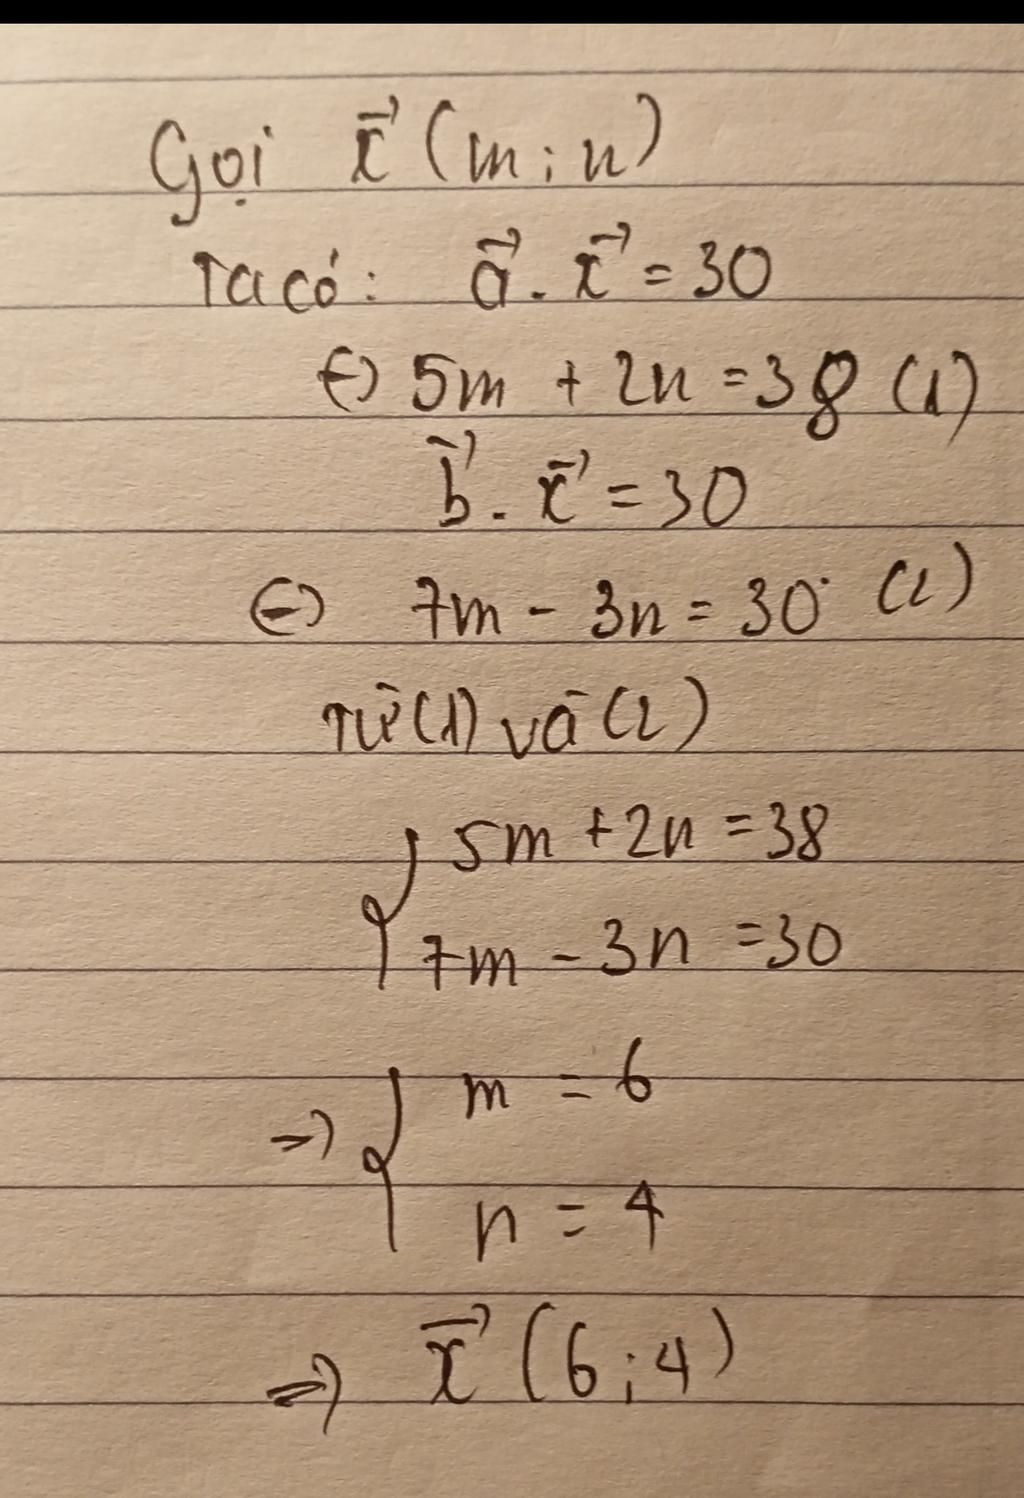 Gọi x⃗ (m; n)
Ta có: a⃗ . x⃗ = 30
⇔ 5m + 2n = 38 (1)
b⃗ . x⃗ = 30
⇔ 7m - 3n = 30 (2)
Từ (1) và (2)
{ 5m + 2n = 38
7m - 3n = 30
⇒ { m = 6
n = 4
⇒ x⃗ (6; 4)